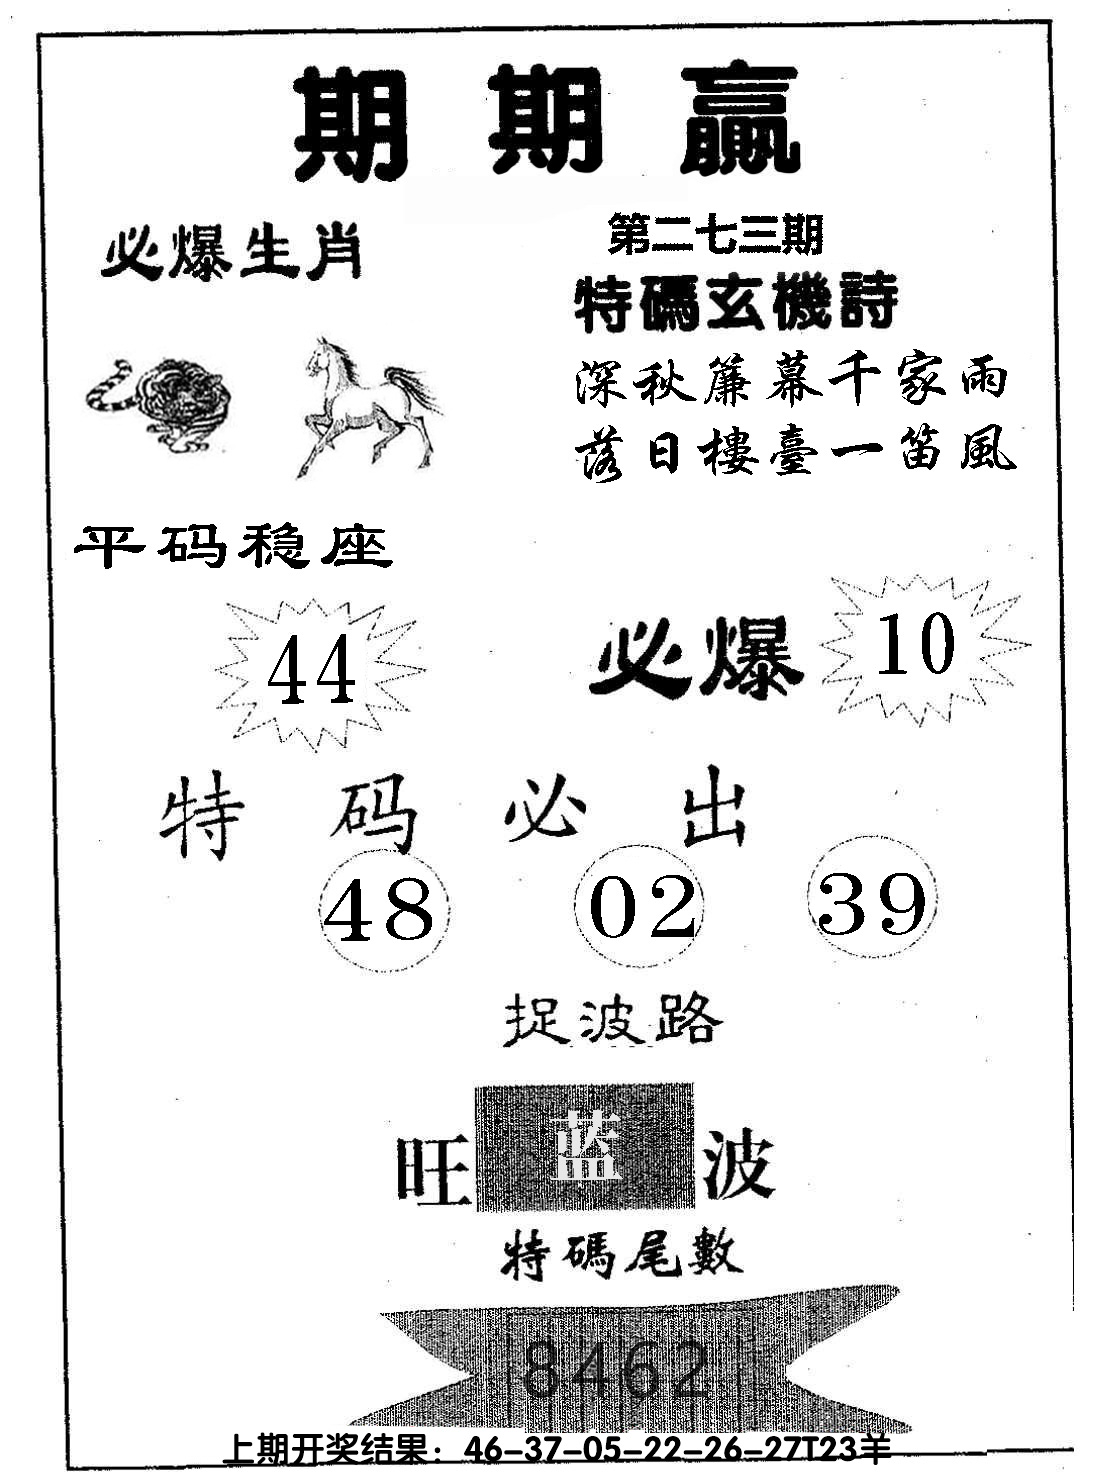 期期贏
必爆生肖
第二七三期
特碼玄機詩
深秋簾幕千家雨
落日樓臺一笛風
平码稳座
44
必爆 10
特码必出
48 02 39
捉波路
旺 蓝 波
特碼尾數
8462
上期开奖结果：46-37-05-22-26-27T23羊